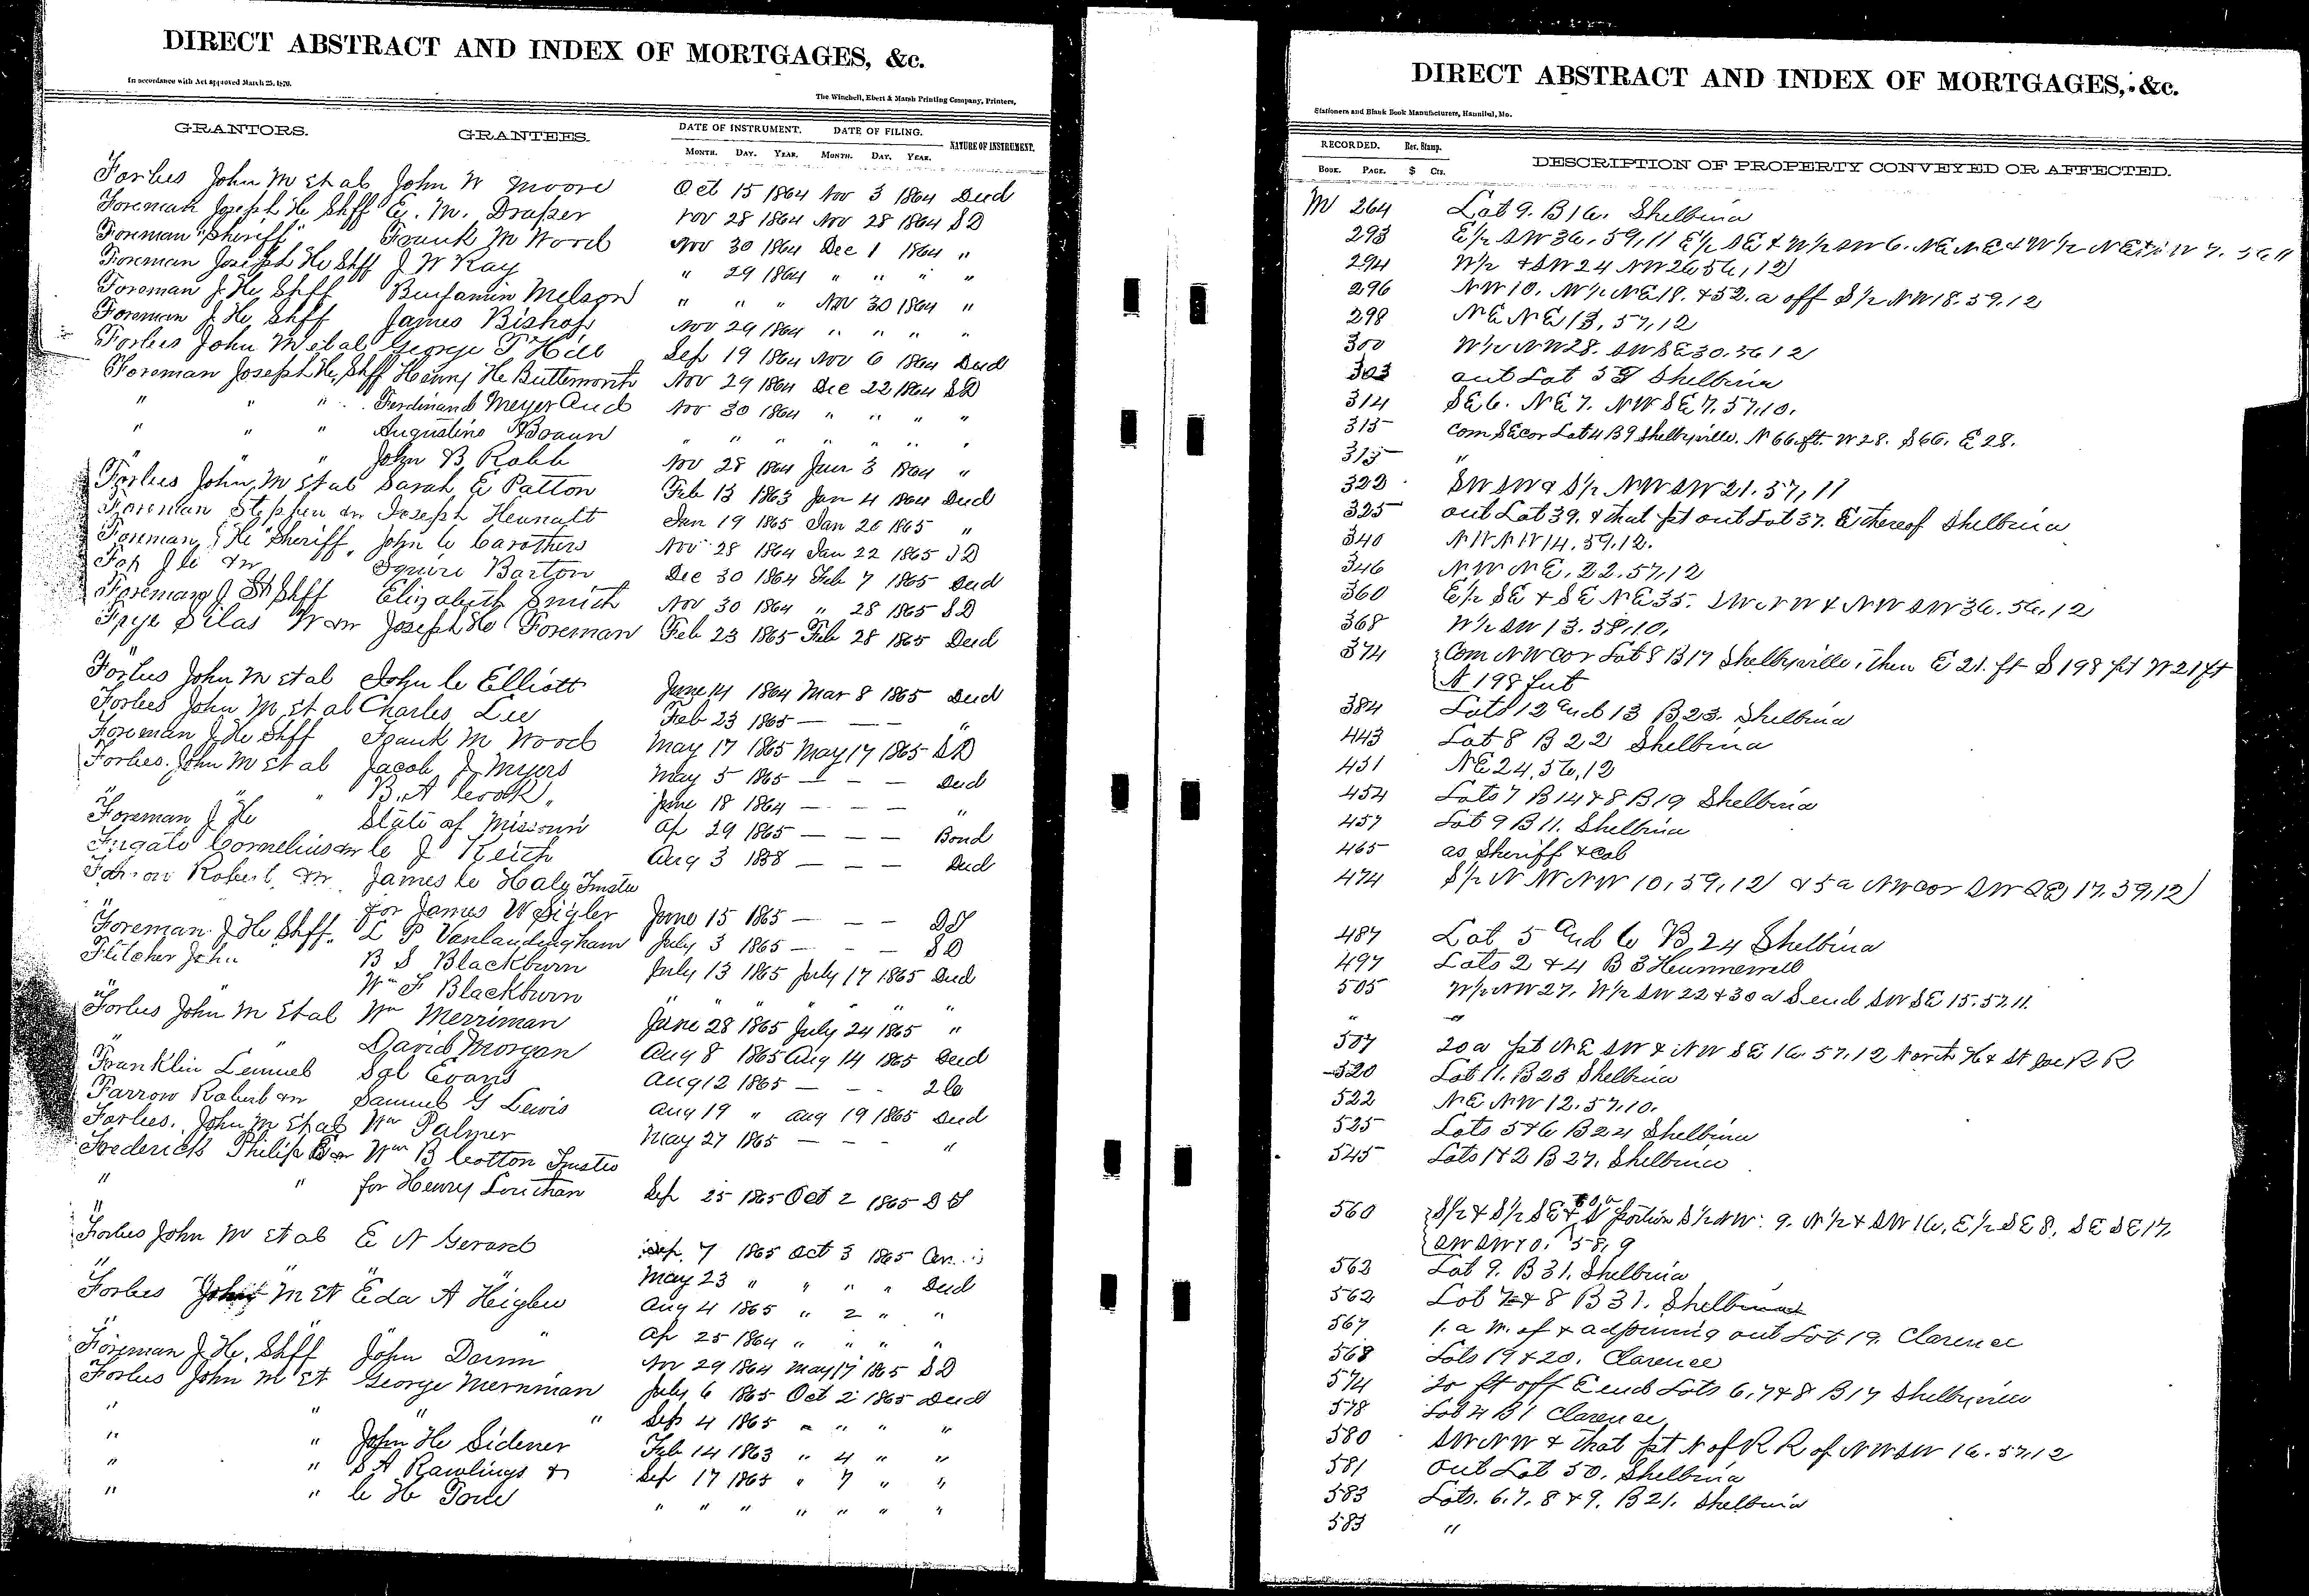 DIRECT ABSTRACT AND INDEX OF MORTGAGES, &c.
In accordance with Act approved March 25, 1870.
The Winchell, Ebert & Marsh Printing Company, Printers,
GRANTORS. GRANTEES. DATE OF INSTRUMENT. DATE OF FILING. NATURE OF INSTRUMENT.
MONTH. DAY. YEAR. MONTH. DAY. YEAR.
Forbes John M et al John W Moore Oct 15 1864 Nov 3 1864 Deed
Foreman Joseph H Shff E. M. Draper Nov 28 1864 Nov 28 1864 SD
Foreman "Sheriff" Frank M Wood Nov 30 1864 Dec 1 1864 "
Foreman Joseph H Shff J W Kay " 29 1864 " " " "
Foreman J. H. Shff Benjamin Melson " " " Nov 30 1864 "
Foreman J H Shff James Bishop Nov 29 1864 " " " "
Forbes John M et al George T Hill Sep 19 1864 Nov 6 1864 Deed
Foreman Joseph H. Shff Henry H Buttemorth Nov 29 1864 Dec 22 1864 SD
" " " Ferdinand Meyer and Nov 30 1864 " " " "
" " " Augustine Braun " " " " " " "
" " " John B Robb Nov 28 1864 Jan 3 1864 "
Forbes John M et al Sarah E Patton Feb 13 1863 Jan 4 1864 Deed
Foreman Stephen Joseph Jan 19 1865 Jan 20 1865 "
Foreman J H Sheriff John C Carothers Nov 28 1864 Jan 22 1865 SD
Fox J C Squire Barton Dec 30 1864 Feb 7 1865 Deed
Foreman J H Shff Elizabeth Smith Nov 30 1864 " 28 1865 SD
Frye Silas W Joseph H Foreman Feb 23 1865 Feb 28 1865 Deed
Forbes John M et al John C Elliott June 14 1864 Mar 8 1865 Deed
Forbes John M et al Charles Lee Feb 23 1865 — — "
Foreman J H Shff Frank M Wood May 17 1865 May 17 1865 SD
Forbes John M et al Jacob J Myers May 5 1865 — — — Deed
" " " B. A Cook June 18 1864 — — — "
Foreman J H State of Missouri Ap 29 1865 — — — Bond
Fugate Cornelius C J Aug 3 1858 — — — Deed
Farrow Robert James C Hale Trustee
" for James W Sigler June 15 1865 — — — DT
Foreman J H Shff. L P Vanlandingham July 3 1865 — — — SD
Fletcher John B S Blackburn July 13 1865 July 17 1865 Deed
" Wm F Blackburn " " " "
Forbes John M et al Wm Merriman June 28 1865 July 24 1865 "
" " David Morgan Aug 8 1865 Aug 14 1865 Deed
Franklin Lemuel Sol Evans Aug 12 1865 — — -
Farrow Robert Samuel G Lewis Aug 19 " Aug 19 1865 Deed
Forbes. John M et al Wm Palmer May 27 1865 — — - "
Frederick Philip Wm B Cotton Trustee
" " for Henry Louthan Sep 25 1865 Oct 2 1865 DT
Forbes John M et al E N Gerard Sep 7 1865 Oct 3 1865
" " " May 23 " " " " Deed
Forbes John M et Eda A Higbee Aug 4 1865 " 2 " "
" " " Ap 25 1864 " " " "
Foreman J H. Shff John Nov 29 1864 May 17 1865 SD
Forbes John M et George Merriman July 6 1865 Oct 2 1865 Deed
" " " " Sep 4 1865 " " " "
" " John H Sidener Feb 14 1863 " 4 " "
" " S A Rawlings & Sep 17 1865 " 7 " "
" " C H " " " " " " "
DIRECT ABSTRACT AND INDEX OF MORTGAGES, &c.
Stationers and Blank Book Manufacturers, Hannibal, Mo.
RECORDED. Rev. Stamp. DESCRIPTION OF PROPERTY CONVEYED OR AFFECTED.
BOOK. PAGE. $ Cts.
M 264 Lot 9. B 16. Shelbina
293 E½ SW 36, 59, 11 E½ SE & W½ SW 6. NE NE & W½ NE
294 W½ & SW 24 NW 26 56, 12
296 NW 10. N½ NE 18. & 52. a off S½ NW 18. 59. 12
298 NE NE 13, 57, 12
300 W½ NW 28. SW SE 30. 56 12
303 out Lot Shelbina
314 SE 6. NE 7. NW SE 7. 57. 10.
315 Com SE cor Lot 4 B 9 Shelbyville. N 66 ft. W 28. S 66. E 28.
315 "
322 SW SW & S½ NW SW 21. 57, 11
325 out Lot 39. & that pt out Lot 37. E thereof Shelbina
340 NW NW 14. 59. 12.
346 NW NE, 22. 57, 12
360 E½ SE & SE NE 35. SW NW & NW SW 36. 56. 12
368 W½ SW 13. 58. 10.
374 Com NW cor Lot 8 B 17 Shelbyville, then E 21. ft S 198 ft W 21 ft
N 198 feet
384 Lots 12 and 13 B. 23. Shelbina
443 Lot 8 B 22 Shelbina
451 NE 24, 56, 12
454 Lots 7 B 14 & 8 B 19 Shelbina
457 Lot 9 B 11. Shelbina
465 as Sheriff & Col
474 S½ N NW NW 10, 59, 12 & 5 a NW cor SW SE 17, 59, 12
487 Lot 5 and 6 B 24 Shelbina
497 Lots 2 & 4 B 3 Hunnewell
505 W½ NW 27. W½ SW 22 & 30 a S end SW SE 15. 57. 11.
" "
507 20 a pt NE SW & NW SE 16. 57. 12 North H & St Joe R R
520 Lot 11. B 23 Shelbina
522 NE NW 12. 57. 10.
525 Lots 5 & 6 B 24 Shelbina
545 Lots 1 & 2 B 27. Shelbina
560 S½ & S½ SE & portion S½ NW. 9. N½ & SW 16, E½ SE 8. SE SE 17.
SW SW 10. 58, 9
562 Lot 9. B 31. Shelbina
562 Lot 7 & 8 B 31. Shelbina
567 1. a W. of & adjoining out Lot 19. Clarence
568 Lots 19 & 20. Clarence
574 20 ft off E end Lots 6, 7 & 8 B 17 Shelbyville
578 Lot 4 B 1 Clarence
580 SW NW & that pt N of R R of NW SW 16. 57. 12
581 out Lot 50. Shelbina
583 Lots. 6. 7. 8 & 9. B 21. Shelbina
583 "